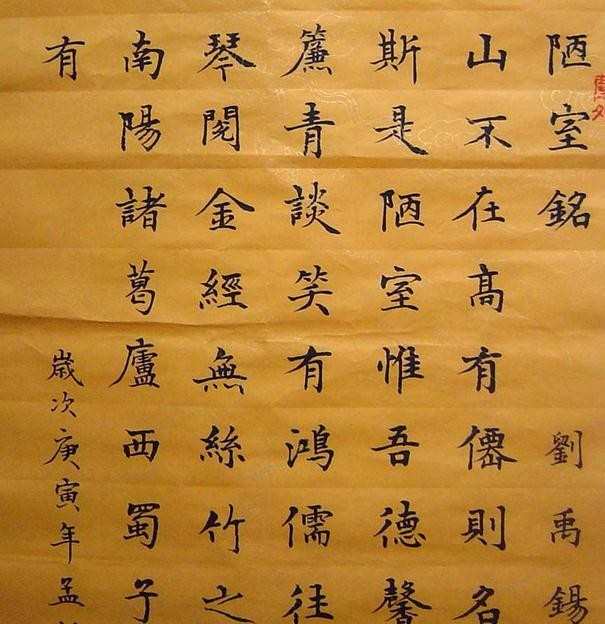 陋室銘 劉禹錫
山不在高有僊則名
斯是陋室惟吾德馨
簾青談笑有鴻儒往
琴閱金經無絲竹之
南陽諸葛廬西蜀子
有 歲次庚寅年孟